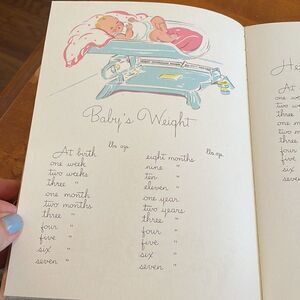 Baby's Weight
lbs ozs
At birth
one week
two weeks
three "
one month
two months
three "
four "
five "
six "
seven "
lbs ozs
eight months
nine "
ten "
eleven "
one year
two years
three "
four "
five "
six "
seven "
He
At
one
two